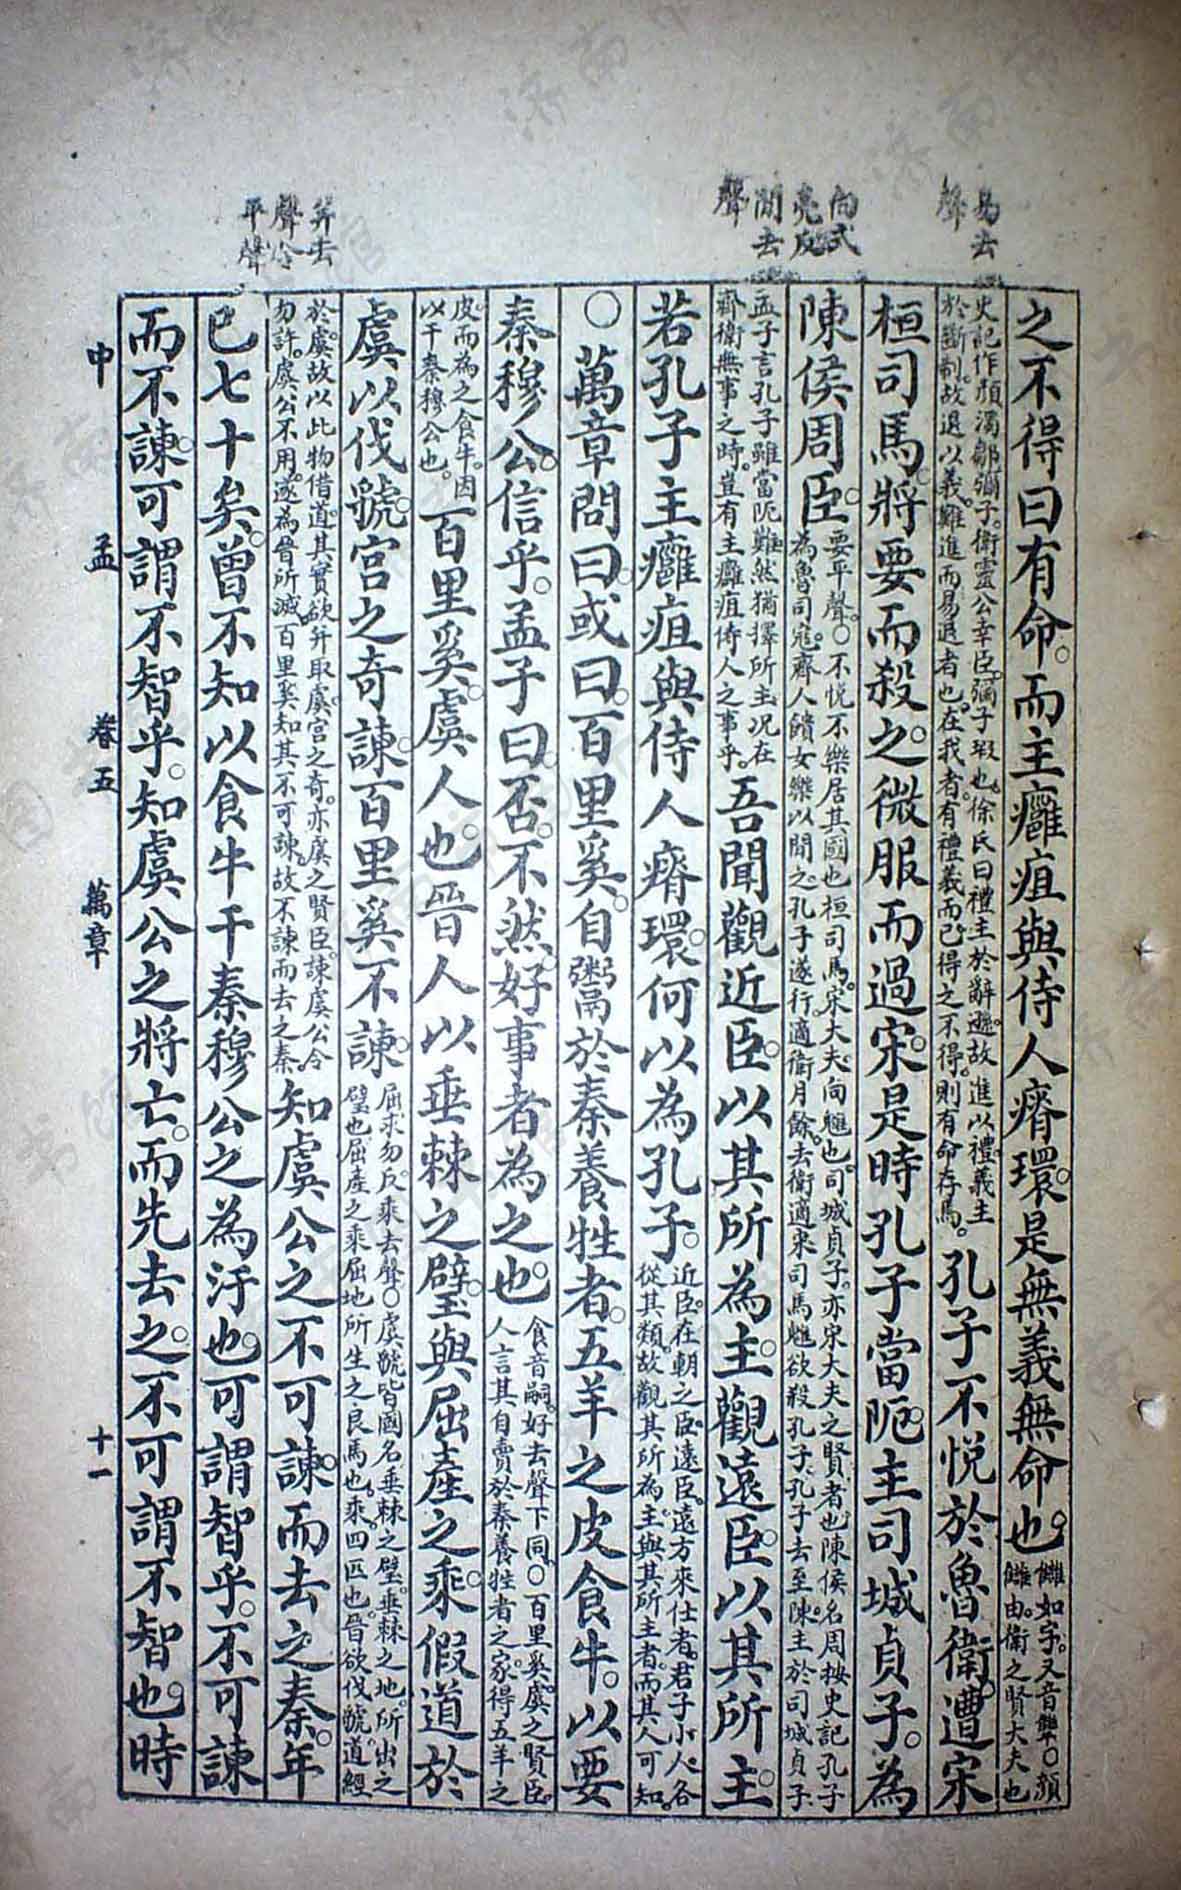 易去
聲
向式
亮反
間去
聲
并去
聲令
平聲
之不得曰有命。而主癰疽與侍人瘠環。是無義無命也。讎如字。又音犨○顏
讎由。衛之賢大夫也
史記作顏濁鄒彌子。衛靈公幸臣。彌子瑕也。徐氏曰禮主於辭遜。故進以禮。義主
於斷制。故退以義。難進而易退者也。在我者。有禮義而已。得之不得。則有命存焉。孔子不悅於魯衛。遭宋
桓司馬。將要而殺之。微服而過宋。是時孔子當阨。主司城貞子。為
陳侯周臣。要平聲。○不悅不樂居其國也桓司馬。宋大夫。向魋也。司城貞子。亦宋大夫之賢者也。陳侯名周按史記孔子
為魯司寇。齊人饋女樂以間之。孔子遂行。適衛月餘。去衛適宋。司馬魋欲殺孔子。孔子去至陳。主於司城貞子。
孟子言孔子雖當阨難。然猶擇所主。况在
齊衛無事之時。豈有主癰疽侍人之事乎。吾聞觀近臣。以其所為主。觀遠臣。以其所主。
若孔子主癰疽與侍人瘠環。何以為孔子。近臣。在朝之臣。遠臣。遠方來仕者。君子小人。各
從其類。故觀其所為主。與其所主者。而其人可知。
○萬章問曰。或曰。百里奚。自鬻於秦養牲者。五羊之皮食牛。以要
秦穆公。信乎。孟子曰。否。不然。好事者為之也。食音嗣。好去聲。下同。○百里奚。虞之賢臣。
人言其自賣於秦養牲者之家。得五羊之
皮。而為之食牛。因
以干秦穆公也。百里奚。虞人也。晉人以垂棘之璧。與屈產之乘。假道於
虞以伐虢。宮之奇諫。百里奚不諫。屈求勿反。乘去聲○虞虢皆國名垂棘之璧。垂棘之地。所出之
璧也屈產之乘屈地所生之良馬也。乘。四匹也。晉欲伐虢。道經
於虞。故以此物借道。其實欲并取虞。宮之奇。亦虞之賢臣。諫虞公令
勿許。虞公不用。遂為晉所滅。百里奚知其不可諫。故不諫而去之秦。知虞公之不可諫。而去之秦。年
已七十矣。曾不知以食牛干秦穆公之為汙也。可謂智乎。不可諫
而不諫。可謂不智乎。知虞公之將亡。而先去之。不可謂不智也。時
中 孟 卷五 萬章 十一